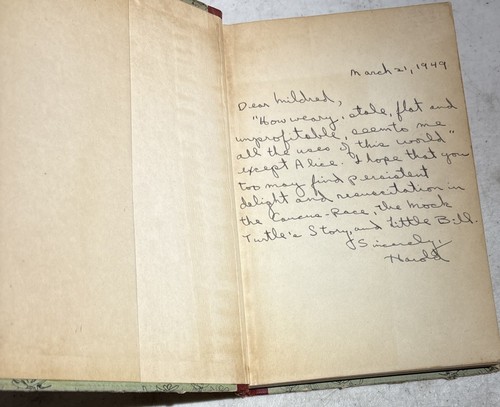 March 21, 1949
Dear Mildred,
"How weary, stale, flat and
unprofitable, seem to me
all the uses of this world"
except Alice. I hope that you
too may find persistent
delight and resuscitation in
the Caucus-Race, the Mock
Turtle's Story, and Little Bill.
Sincerely,
Harold